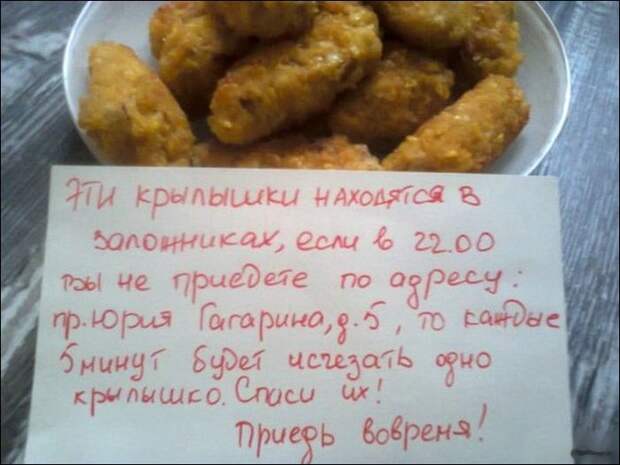 Эти крылышки находятся в
заложниках, если в 22.00
вы не приедете по адресу:
пр. Юрия Гагарина, д. 5, то каждые
5 минут будет исчезать одно
крылышко. Спаси их!
Приедь вовремя!